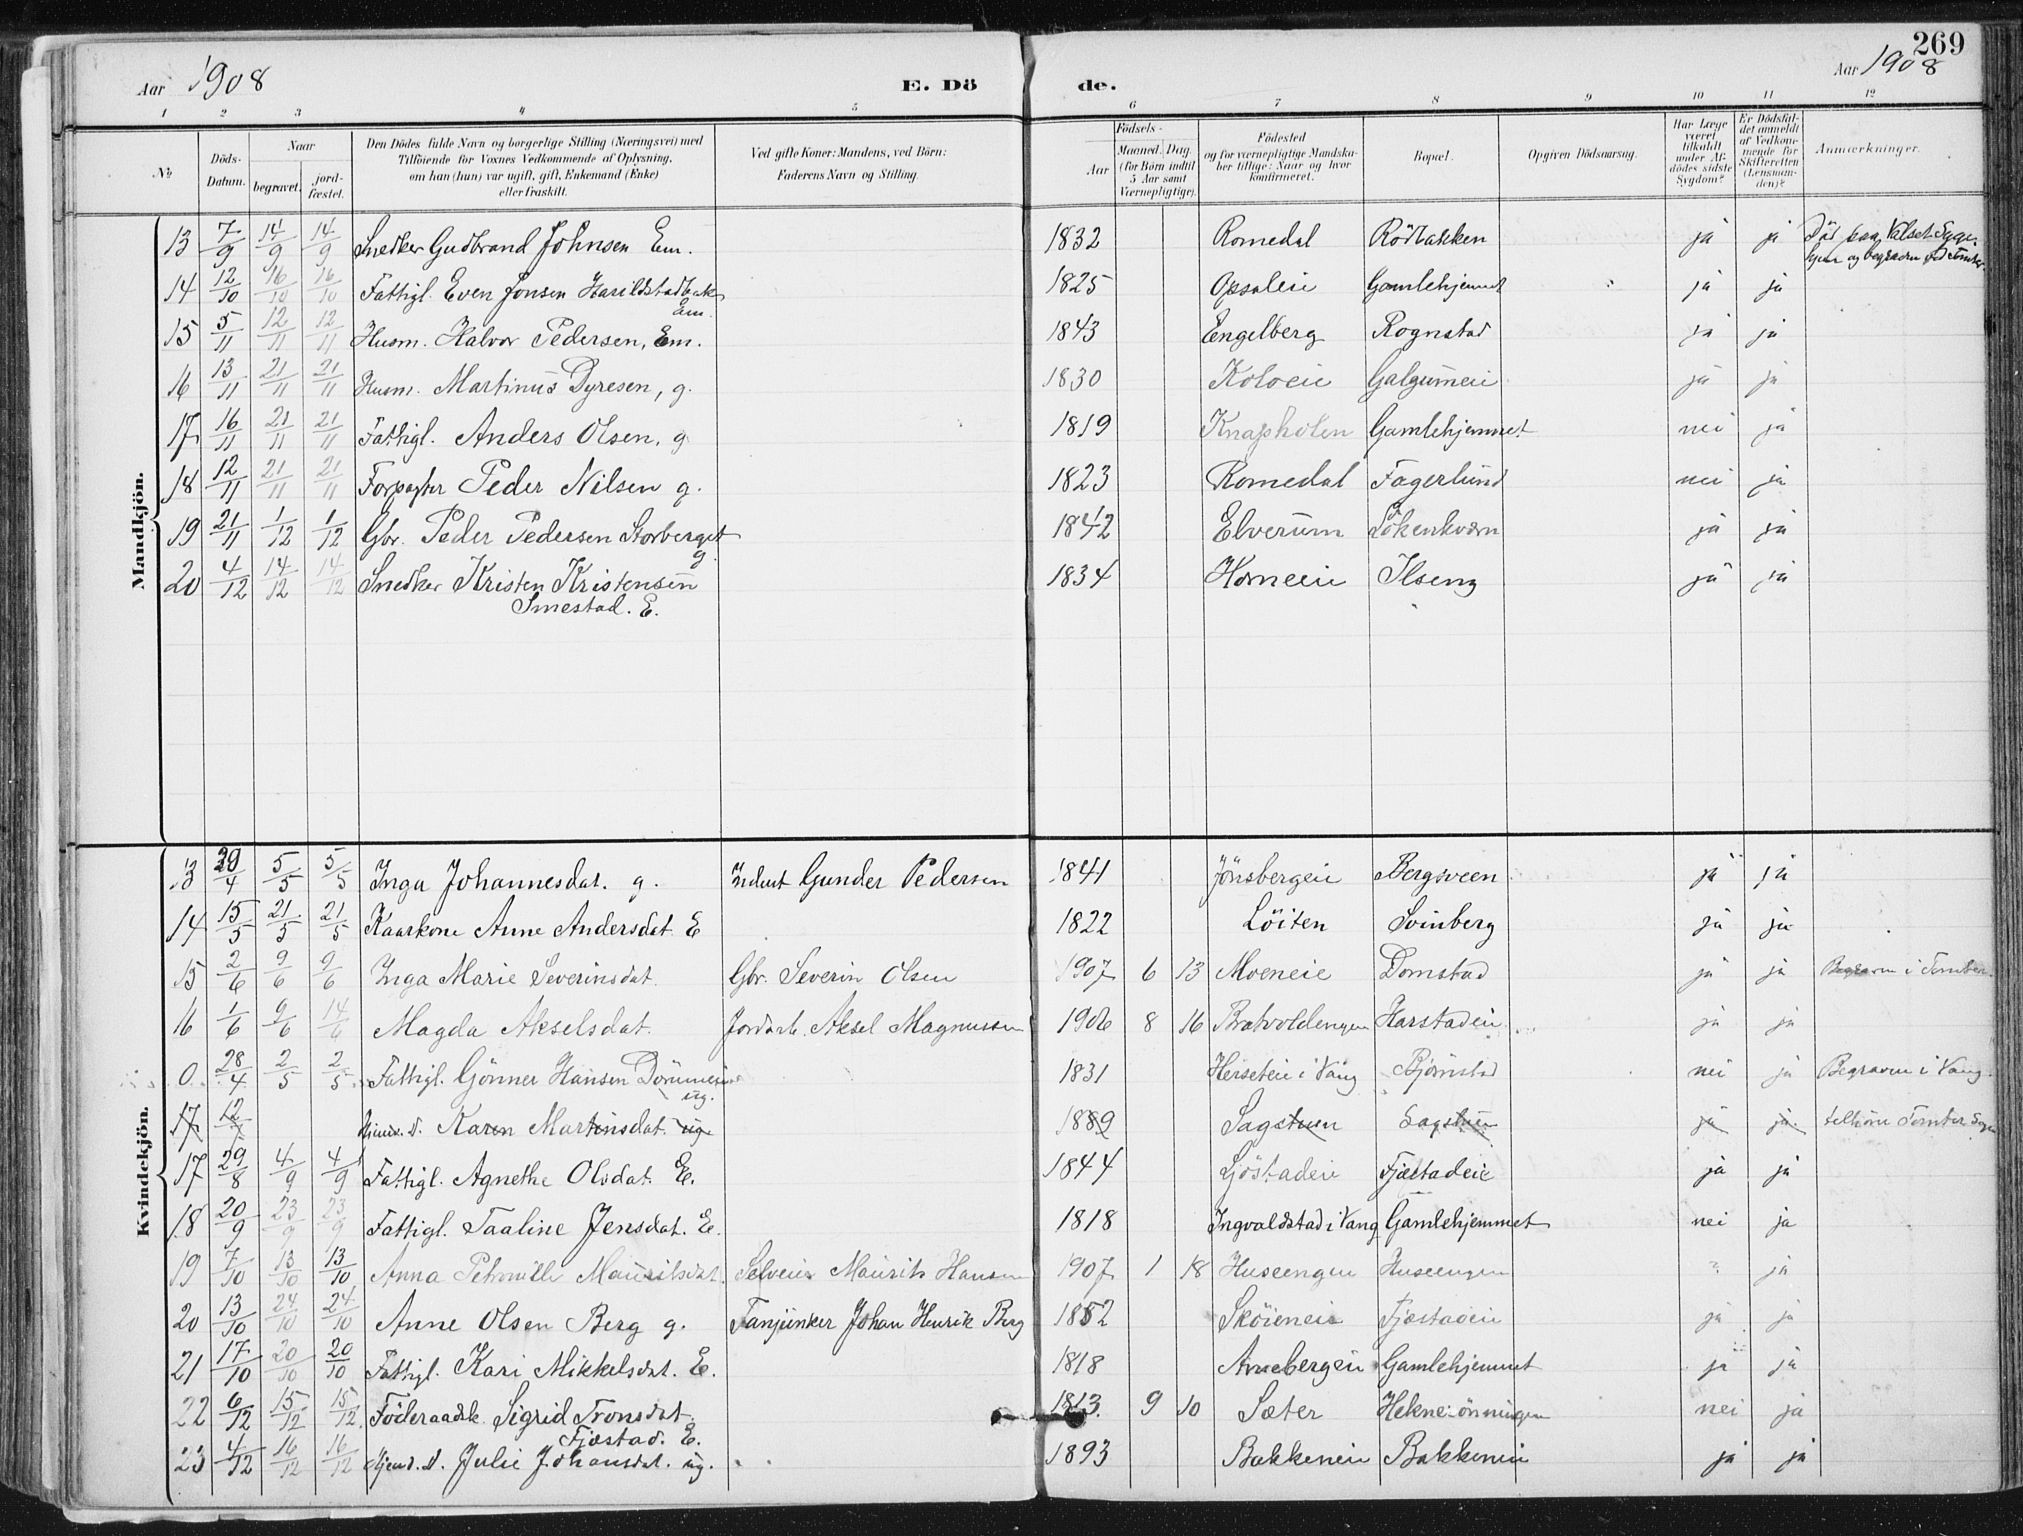 269
Aar 1908 E. Dö de. Aar 1908
1 2 3 4 5 6 7 8 9 10 11 12
№ Döds-Datum. Naar begravet. jordfæstet. Den Dödes fulde Navn og borgerlige Stilling (Næringsvei) med Tilföiende for Voxnes Vedkommende af Oplysning, om han (hun) var ugift, gift, Enkemand (Enke) eller fraskilt. Ved gifte Koner: Mandens, ved Börn: Faderens Navn og Stilling. Födsels- Aar Maaned. Dag. (for Börn indtil 5 Aar samt Værnepligtige). Födested og for værnepligtige Mandskaber tillige: Naar og hvor konfirmeret. Bopæl. Opgiven Dödsaarsag. Har Læge været tilkaldt under Afdödes sidste Sygdom? Er Dödsfaldet anmeldt af Vedkommende for Skifteretten (Lensmanden)? Anmærkninger.
Mandkjön.
13 7/9 14/9 14/9 Snedker Gudbrand Johnsen Em. 1832 Romedal Rödbakken ja ja Död paa Valset Syge-
hjem og begraven ved Tomter
14 12/10 16/10 16/10 Fattigl. Even Jonsen Harildstadbak Em. 1825 Opsaleie Gamlehjemmet ja ja
15 5/11 12/11 12/11 Husm. Halvor Pedersen, Em. 1843 Engelberg Rognstad ja ja
16 13/11 21/11 21/11 Husm. Martinus Dyresen, g. 1830 Koloeie Galgumeie ja ja
17 16/11 21/11 21/11 Fattigl. Anders Olsen, g 1819 Knapholen Gamlehjemmet nei ja
18 12/11 21/11 21/11 Forpagter Peder Nilsen g. 1823 Romedal Fagerlund nei ja
19 21/11 1/12 1/12 Gbr. Peder Pedersen Storberget g. 1842 Elverum Lökenkværn ja ja
20 4/12 14/12 14/12 Snedker Kristen Kristensen 1834 Horneeie Ilseng ja ja
Smestad. E.
Kvindekjön.
13 29/4 5/5 5/5 Inga Johannesdat. g. Indust Gunder Pedersen 1841 Jönsbergeie Bergsveen ja ja
14 15/5 21/5 21/5 Kaarkone Anne Andersdat. E 1822 Löiten Svinberg ja ja
15 2/6 9/6 9/6 Inga Marie Severinsdat. Gbr. Severin Olsen 1907 6 13 Moeneie Domstad ja ja Begraven i Tomter.
16 1/6 9/6 14/6 Magda Akselsdat. Jordarb. Aksel Magnussen 1906 8 16 Bratvoldengen Harstadeie ja ja
0 28/4 2/5 2/5 Fattigl. Gönner Hansen ug. 1831 Herseteie i Vang Bjørnstad nei ja Begraven i Vang.
17 12/ Hjemv. D. Karen Martinsdat. ug. 1889 Sagstuen Sagstuen ja ja. tilhörer Tomter Sogn
17 29/8 4/9 4/9 Fattigl. Agnethe Olsdat. E. 1844 Ljöstadeie Fjæstadeie ja ja
18 20/9 23/9 23/9 Fattigl. Taaline Jensdat. E. 1818 Ingvaldstad i Vang Gamlehjemmet nei ja
19 7/10 13/10 13/10 Anna Petronille Mauritsdat. Selveier Maurits Hansen 1907 1 18 Huseengen Huseengen ? ja
20 13/10 24/10 24/10 Anne Olsen Berg g. Fanjunker Johan Henrik Berg 1852 Sköieneie Fjæstadeie ja ja
21 17/10 20/10 20/10 Fattigl. Kari Mikkelsdat. E. 1818 Arnebergeie Gamlehjemmet ja ja
22 6/12 15/12 15/12 Föderaadsk. Sigrid Tronsdat. 1813. 9 10 Sæter nei ja
Fjæstad. E.
23 4/12 16/12 16/12 Hjemv. D. Julie Johansdat. ug. 1893 Bakkeneie Bakkeneie ja ja